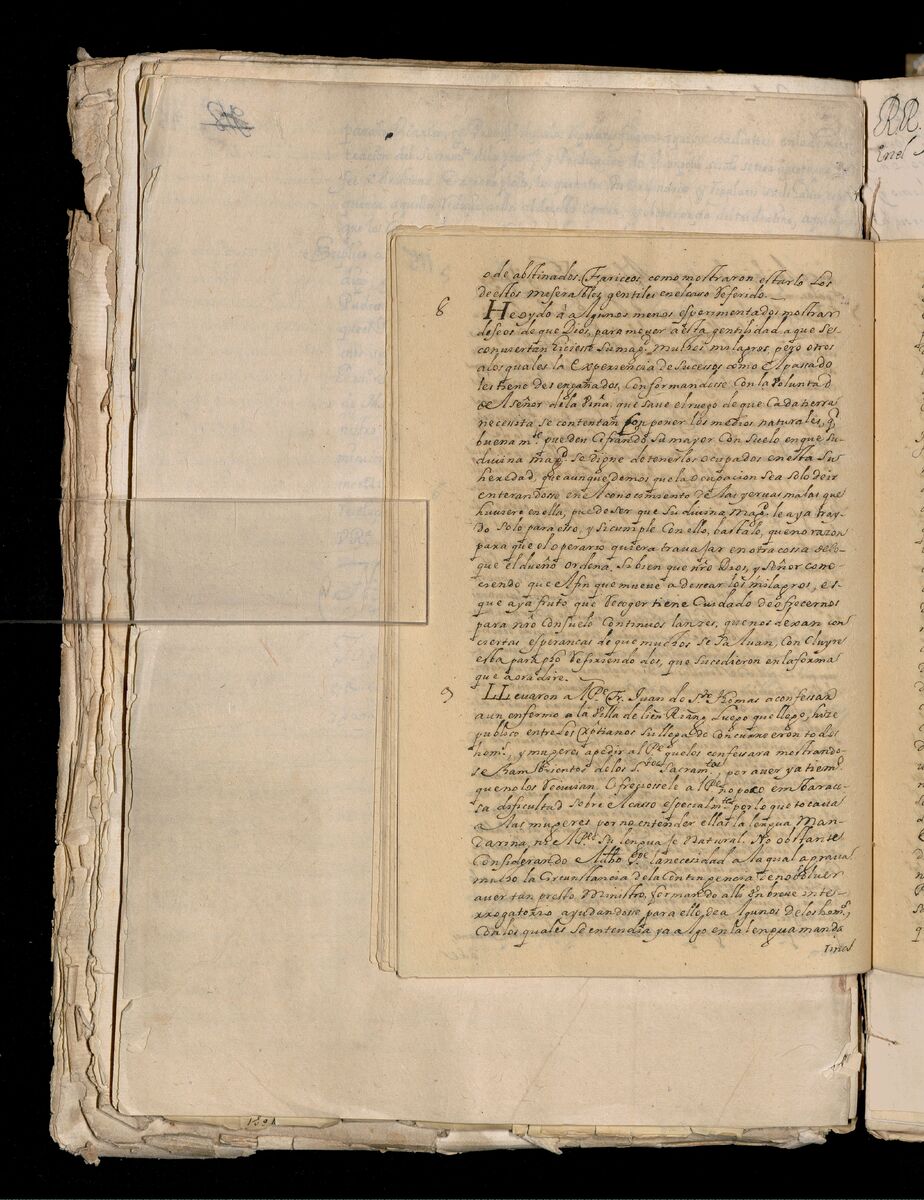 o de abstinados. Fariceos, como mostraron estarlo Los
de estos miserables gentiles en el caso Referido.
8 He oydo â algunos menos esperimentados mostrar
deseos de que Dios, para mover a esta gentilidad a que se
conviertan hiciese su magd. muchos milagros, pero otros
a los quales la Experiencia de sucessos como el passado
les tiene desengañados, Conformandose Con la Voluntad
de el señor de la Viña, que save el riego de que Cada tierra
necesita se contentan Con poner los medios naturales, q
buena mte. pueden Cifrando su mayor Con suelo en que su
divina magd. se digne de tenerlos ocupados en esta su
heredad, que aunque demos que la ocupacion sea solo de ir
enterandose en el conocimiento de las yervas malas que
huviere en ella, puede ser que su divina magd. le aya tray-
do solo para esto, y si cumple Con ello, bastale, que no razon
para que el operario quiera travajar en otra cossa de lo
que el dueño ordena. Si bien que nro Dios, y señor cono-
ciendo que el fin que mueve a desear los milagros, es
que aya fruto que Recoger tiene Cuidado de ofrecernos
para nro Consuelo Continuos lances, que nos dexan con
ciertas esperancas de que muchos se salvan, Concluyre
este parrapho Refiriendo dos, que sucedieron en la forma
que aora dire.
9 LLevaron a el Pe. Fr. Juan de Sto Thomas a confessar
a un enfermo a la Villa de lien Kiang Luego que llego, hize
publico entre los Xptianos su llegada Concurrieron todos
homs., y mugeres a pedir al Pe. que los confessara mostrando-
se hambrientos de los Stos Sacramtos, por aver ya tiempo
que no los Recivian. Ofreciosele a el Pe. no poco embaraco-
sa dificultad sobre el caso especialmte por lo que tocava
a las mugeres por no entender ellas la lengua Man-
darina, ni el Pe. su lengua de Natural. No obstante
Considerando el dicho Pe. la necesidad a la qual agrava
mucho la Circunstancia de la Contingencia de no bolver
a ver tan presto Ministro, formando alli Un breve inte-
rrogatorio ayudandose para ello, de algunos de los homs.,
Con los quales se entendia ya algo en la lengua manda
rina